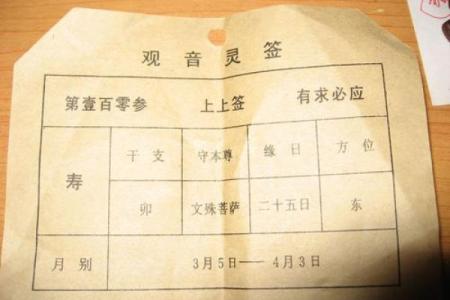 观音灵签
第壹百零参 上上签 有求必应
寿 干支 守本尊 缘日 方位
卯 文殊菩萨 二十五日 东
月别 3月5日——4月3日